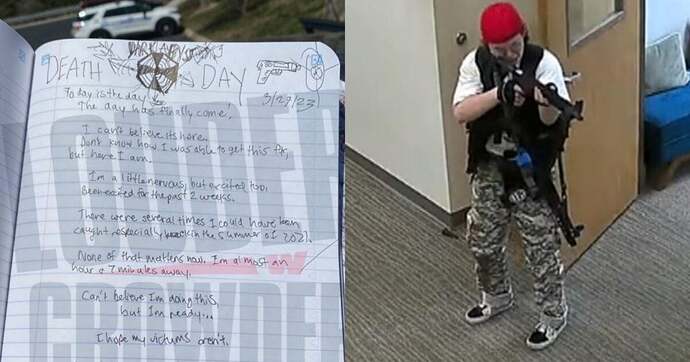 DEATH DAY
DARK ABYSS
3/27/23
Today is the day
The day has finally come!
I can't believe its here.
Dont know how I was able to get this far,
but here I am.
I'm a little nervous, but excited too.
Been excited for the past 2 weeks.
There were several times I could have been
caught especially back in the summer of 2021.
None of that matters now. I'm almost an
hour & 7 minutes away.
Can't believe I'm doing this,
but I'm ready...
I hope my victims aren't.
LOUDER
W
CROWDER